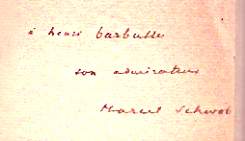 à henri barbusse
son admirateur
Marcel Schwob